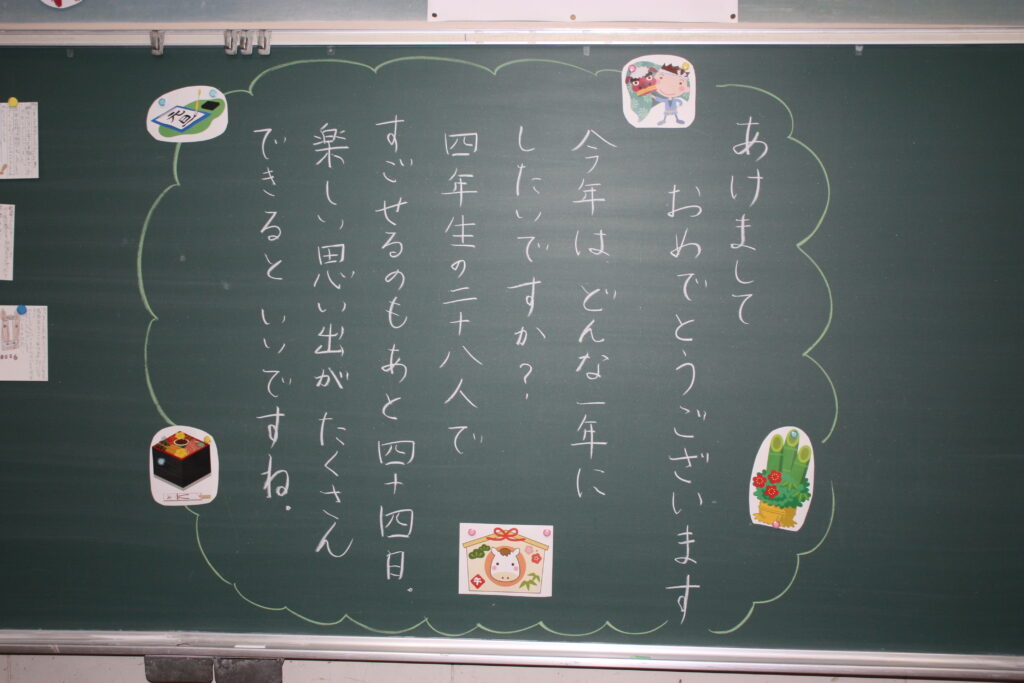 あけまして
おめでとうございます
今年は どんな一年に
したいですか?
四年生の二十八人で
すごせるのもあと四十四日。
楽しい思い出が たくさん
できると いいですね。
元旦
午
2026